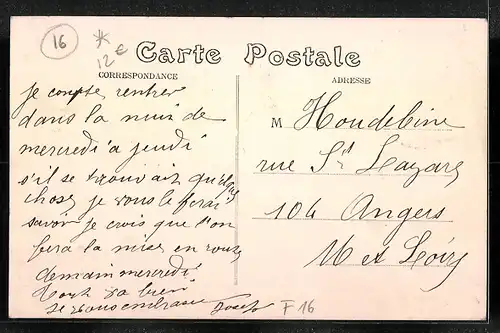 16
*
12 €
Carte Postale
CORRESPONDANCE
ADRESSE
Je compte rentrer
dans la nuit de
mercredi à jeudi
s'il se trouvait quelque
chose je vous le ferai
savoir je crois que l'on
fera la mise en route
demain mercredi
tout va bien
Je vous embrasse Joseph
M Houdebine
rue St Lazare
104 Angers
M et Loire
F 16